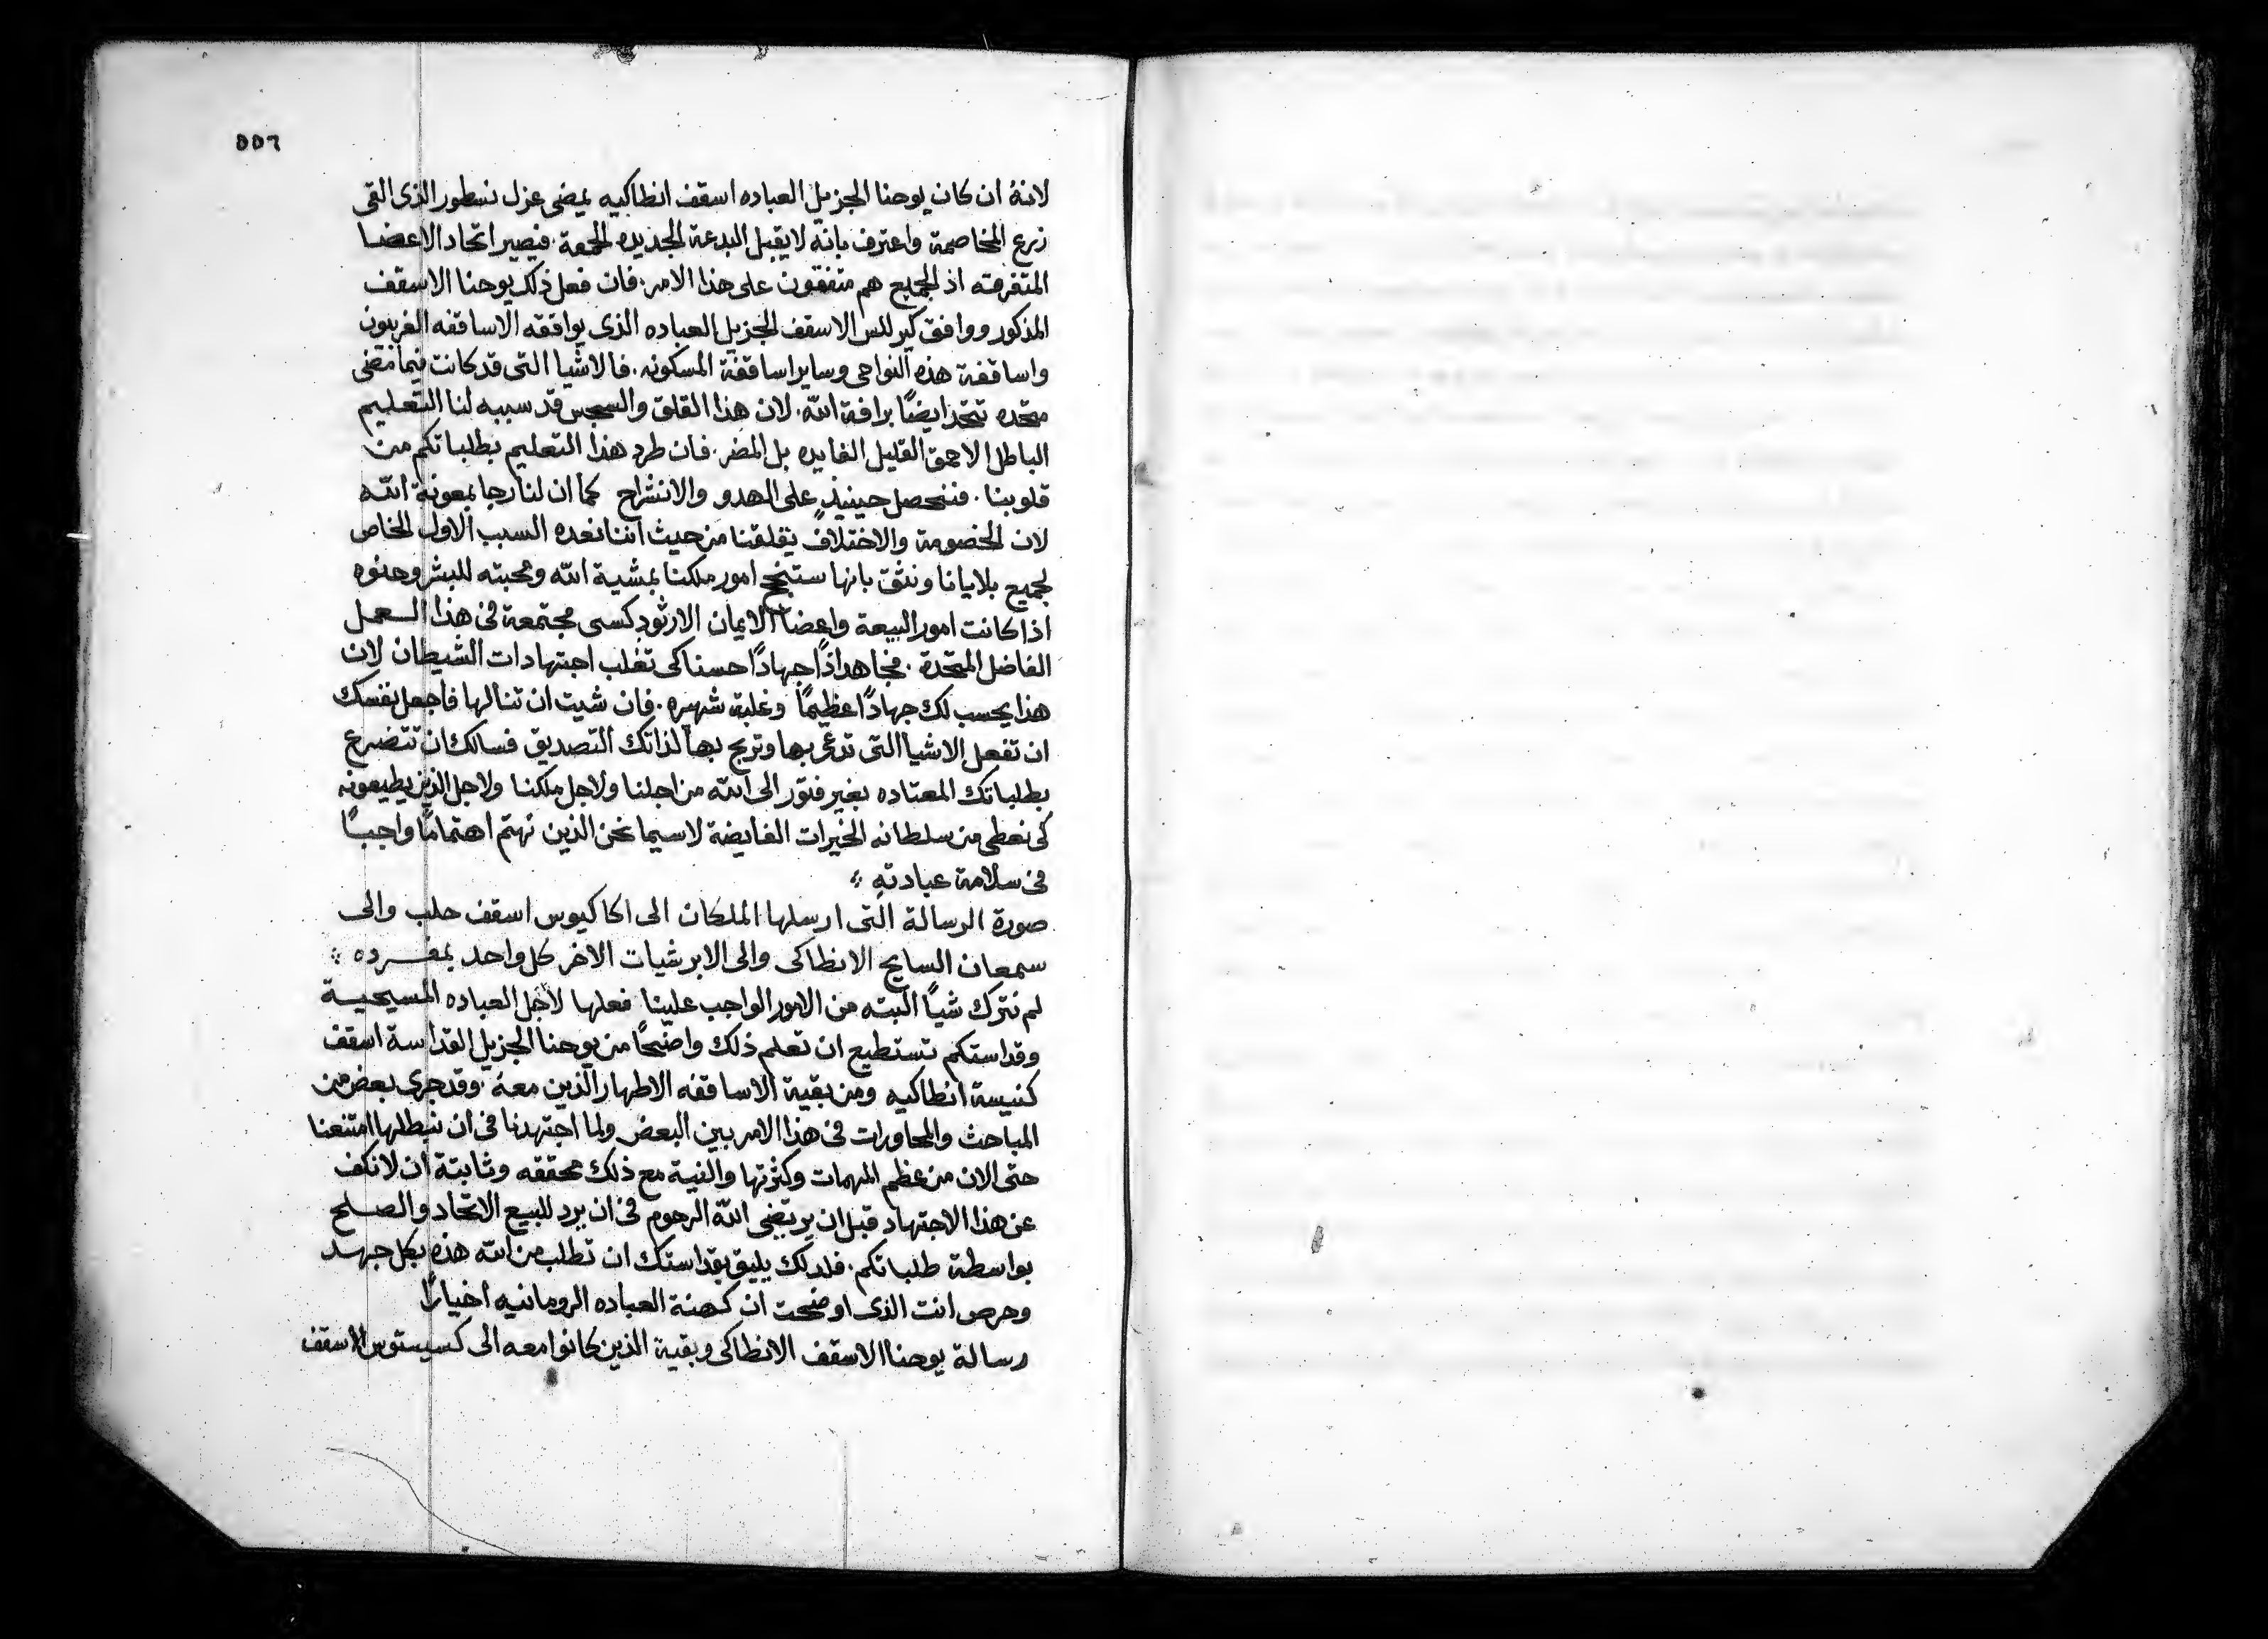 ٥٥٦
لانهُ ان كان يوحنا الجزيل العباده اسقف انطاكيه يمضى عزل نسطور الذى القى
زرع المخاصمة واعترف بانه لا يقبل البدعة الجديده فيصير اتحاد الاعضا
المتفرقه اذ الجميع هم متفقون على هذا الامر. فان فعل ذلك يوحنا الاسقف
المذكور ووافق كيرللس الاسقف الجزيل العباده الذى يوافقه الاساقفه الغربيون
واساقفة هذه النواحى وساير اساقفة المسكونه. فالاشيا التى قد كانت فيما مضى
متحده تتحد ايضًا برافة الله. لان هذا القلق والسجس قد سببه لنا التعليم
الباطل الاحمق القليل الفايده بل المضر. فان طرد هذا التعليم بطلباتكم من
قلوبنا. فنحصل حينيذٍ على الهدو والانشراح كما ان لنا رجا بمعونة الله
لان الخصومة والاختلاف يقلقنا من حيث اننا نعده السبب الاول الخاص
لجميع بلايانا ونثق بانها ستنجح امور ملكنا بمشية الله ومحبته للبشر وحنوه
اذا كانت امور البيعة واعضا الايمان الارثودكسى مجتمعة فى هذا العمل
الفاضل المتحدة. فجاهد اذًا جهادًا حسنا كى تغلب اجتهادات الشيطان لان
هذا يحسب لك جهادًا عظيمًا وغلبة شهيره. فان شيت ان تنالها فاجعل نفسك
ان تفعل الاشيا التى تدعى بها وتربح بها لذاتك التصديق فسالك ان تتضرع
بطلباتك المعتاده بغير فتور الى الله من اجلنا ولاجل ملكنا ولاجل الذين يطيعونه
كى نعطى من سلطانه الخيرات الفايضة لاسيما نحن الذين نهتم اهتمامًا واجبًا
فى سلامة عبادتهِ
صورة الرسالة التى ارسلها الملكان الى اكاكيوس اسقف حلب والى
سمعان السايح الانطاكى والى الابرشيات الاخر كل واحد بمفرده
لم نترك شيًا البته من الامور الواجب علينا فعلها لاجل العباده المسيحية
وقداستكم تستطيع ان تعلم ذلك واضحًا من يوحنا الجزيل القداسة اسقف
كنيسة انطاكيه ومن بقية الاساقفه الاطهار الذين معهُ. وقد جرى بعض من
المباحث والمحاورات فى هذا الامر بين البعض ولما اجتهدنا فى ان نبطلها امتنعنا
حتى الان من عظم المهمات وكثرتها والنية مع ذلك محققه وثابتة ان لا نكف
عن هذا الاجتهاد قبل ان يرتضى الله الرحوم فى ان يرد للبيع الاتحاد والصلح
بواسطة طلباتكم. فلدلك يليق بقداستك ان تطلب من الله هذه بكل جهد
وحرص انت الذى اوضحت ان كهنة العباده الرومانيه اخيارًا
رسالة يوحنا الاسقف الانطاكى وبقية الذين كانوا معه الى كسيستوس الاسقف